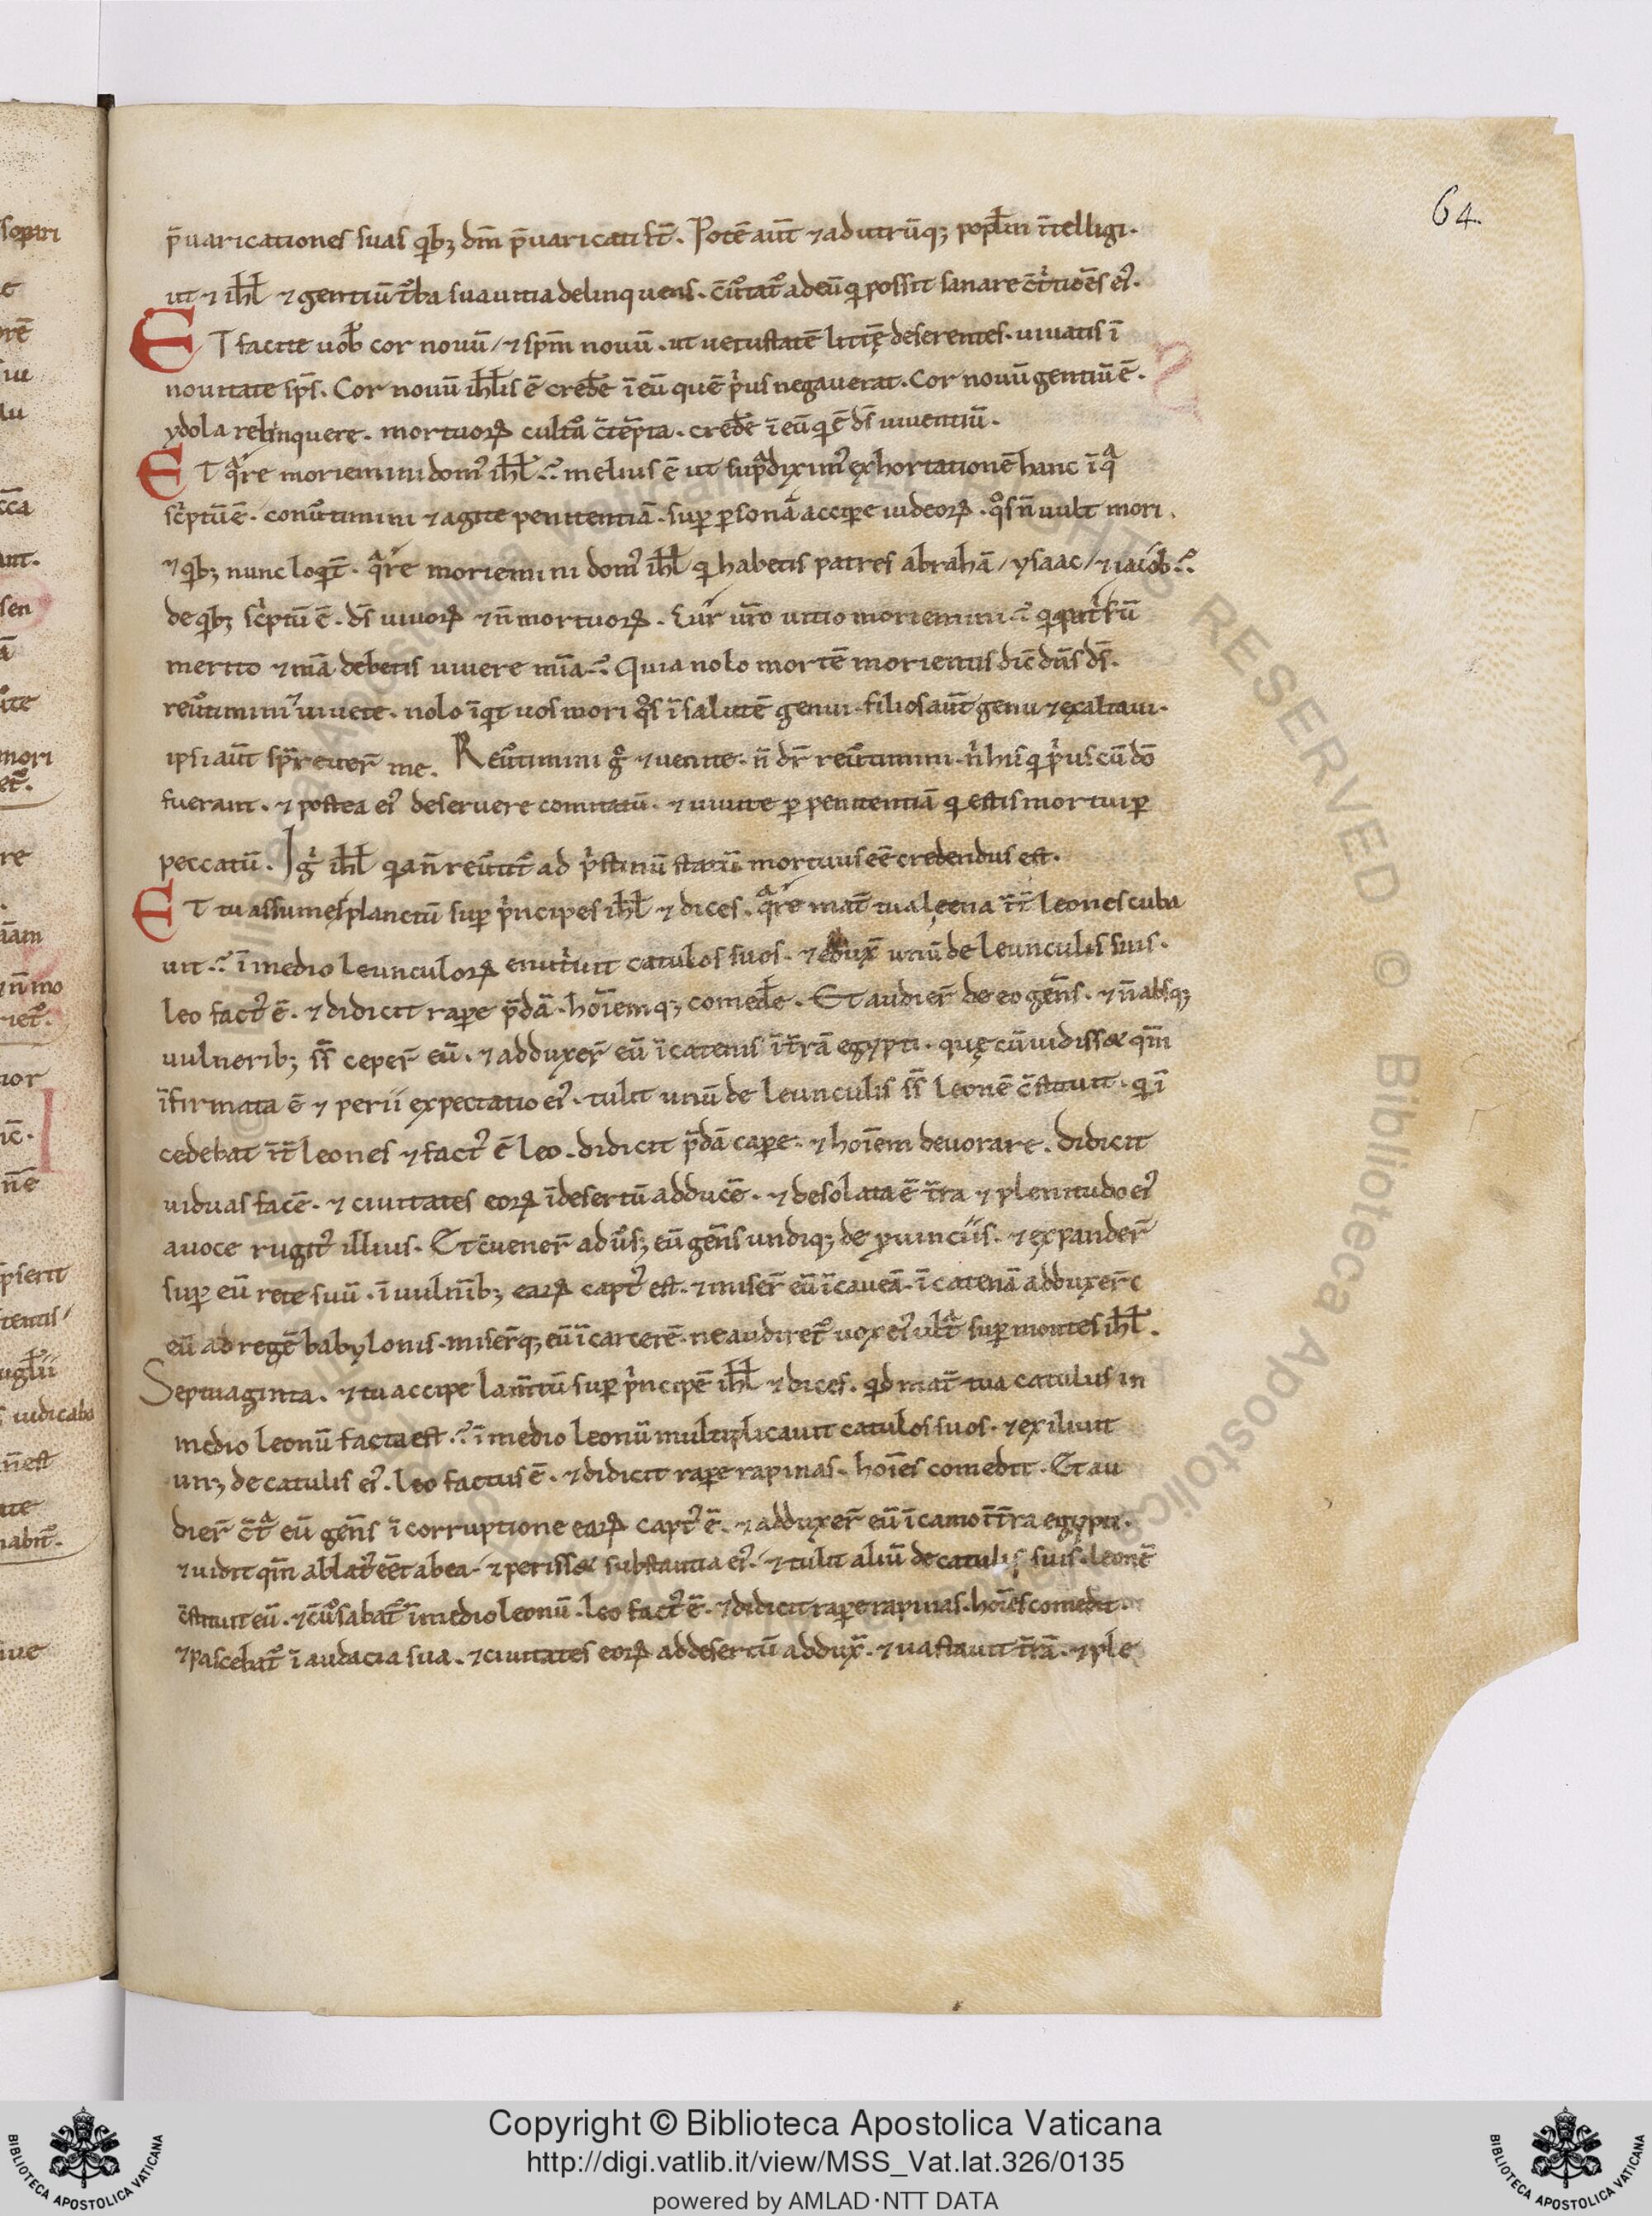 64.
p̄uaricationes suas qb; dm̄ p̄uaricati st̄. Potē aut̄ ⁊ ad utrūq; popl̄m ītelligi.
ut ⁊ ihl̄ ⁊ gentiū t̄ba sua uitia delinquens. c̄ūtat᷑ ad eū qi possit sanare c̄t̄tiōes ei᷒.
ET facite uob̄ cor nouū / ⁊ sp̄m nouū. ut uetustatē litt̄ę deserentes. uiuatis ī
nouitate sp̄s. Cor nouū ihl̄is ē credē ī eū quē p̄us negauerat. Cor nouū gentiū ē.
ydola relinquere. mortuoꝝ cultū c̄tēpta. credē ī eū qi ē ds̄ uiuentiū.
ET qͣre moriemini dom᷒ ihl̄? melius ē ut supͣdixim᷒ exhortationē hanc ī qͣ
sc̄ptū ē. conūtimini ⁊ agite penitentiā. suꝑ ꝑsonā acciꝑe iudeoꝝ. qͦs n̄ uult mori.
⁊ qb; nunc loqt᷑. qͣre moriemini dom᷒ ihl̄ qi habetis patres abrahā / ysaac / ⁊ iacob?
de qb; sc̄ptū ē. ds̄ uiuoꝝ ⁊ n̄ mortuoꝝ. Cur ur̄o uitio moriemini. qi pat̄ꝝ
merito ⁊ m̄a debetis uiuere mīa? Quia nolo mortē morientis dic̄ dn̄s ds̄.
reūtimini uiuete. nolo īqt uos mori qͦs ī salutē genui. filios aut̄ genui ⁊ exaltaui.
ipsi aut̄ spreuer̄ me. Reūtimini gͦ ⁊ uenite. n̄ dr̄ reūtimini. n̄ his qi p̄us cū dō
fuerant. ⁊ postea ei᷒ deseruere comitatū. ⁊ uiuite ꝑ penitentiā qi estis mortui ꝑ
peccatū. Igͥ ihl̄ qi a n̄ reūtit᷑ ad p̄stinū statū mortuus ēē credendus est.
ET tu assumes planctū suꝑ p̄ncipes ihl̄ ⁊ dices. qͣre mat̄ tua leęna īt̄ leones cuba
uit? ī medio leunculoꝝ enut̄uit catulos suos. ⁊ edux̄ unū de leunculis suis.
leo fact᷒ ē. ⁊ didicit raꝑe p̄dā. hoīemq; comedē. Et audier̄ de eo gen̄s. ⁊ n̄ absq;
uulnerib; ss̄ ceper̄ eū. ⁊ adduxer̄ eū ī catenis ī t̄rā egypti. quę cū uidiss& qm̄
īfirmata ē ⁊ perii expectatio ei᷒. tulit unū de leunculis ss̄ leonē c̄stituit. qi ī
cedebat īt̄ leones ⁊ fact᷒ ē leo. didicit p̄dā caꝑe. ⁊ hoīem deuorare. didicit
uiduas facē. ⁊ ciuitates eoꝝ ī desertū adducē. ⁊ desolata ē t̄ra ⁊ plenitudo ei᷒
a uoce rugit᷒ illius. Et c̄uener̄ ad ūs; eū gen̄s undiq; de ꝓuinciis. ⁊ expander̄
suꝑ eū rete suū. ī uulnīb; eaꝝ capt᷒ est. ⁊ miser̄ eū ī caueā. ī catenā adduxer̄c
eū ad regē babylonis. miser̄q; eū ī carcerē. ne audiret᷑ uox ei᷒ ult̄ͣ suꝑ montes ihl̄.
Septuaginta. ⁊ tu accipe lam̄tū suꝑ p̄ncipē ihl̄ ⁊ dices. qd mat̄ tua catulus in
medio leonū facta est? ī medio leonū multiplicauit catulos suos. ⁊ exiliuit
un; de catulis ei᷒. leo factus ē. ⁊ didicit raꝑe rapinas. hoīes comedit. Et au
dier̄ c̄tͣ eū gen̄s ī corruptione eaꝝ capt᷒ ē. ⁊ adduxer̄ eū ī camo ī t̄ra egypti.
⁊ uidit qm̄ ablat᷒ ēēt ab ea. ⁊ periss& substantia ei᷒. ⁊ tulit aliū de catulis suis. leonē
c̄stituit eū. ⁊ c̄ūsabat᷑ ī medio leonū. leo fact᷒ ē. ⁊ didicit raꝑe rapinas. hoīes comedit.
⁊ pascebat᷑ ī audacia sua. ⁊ ciuitates eoꝝ ad desertū addux̄. ⁊ uastauit t̄rā. ⁊ ple
Copyright © Biblioteca Apostolica Vaticana
http://digi.vatlib.it/view/MSS_Vat.lat.326/0135
powered by AMLAD·NTT DATA